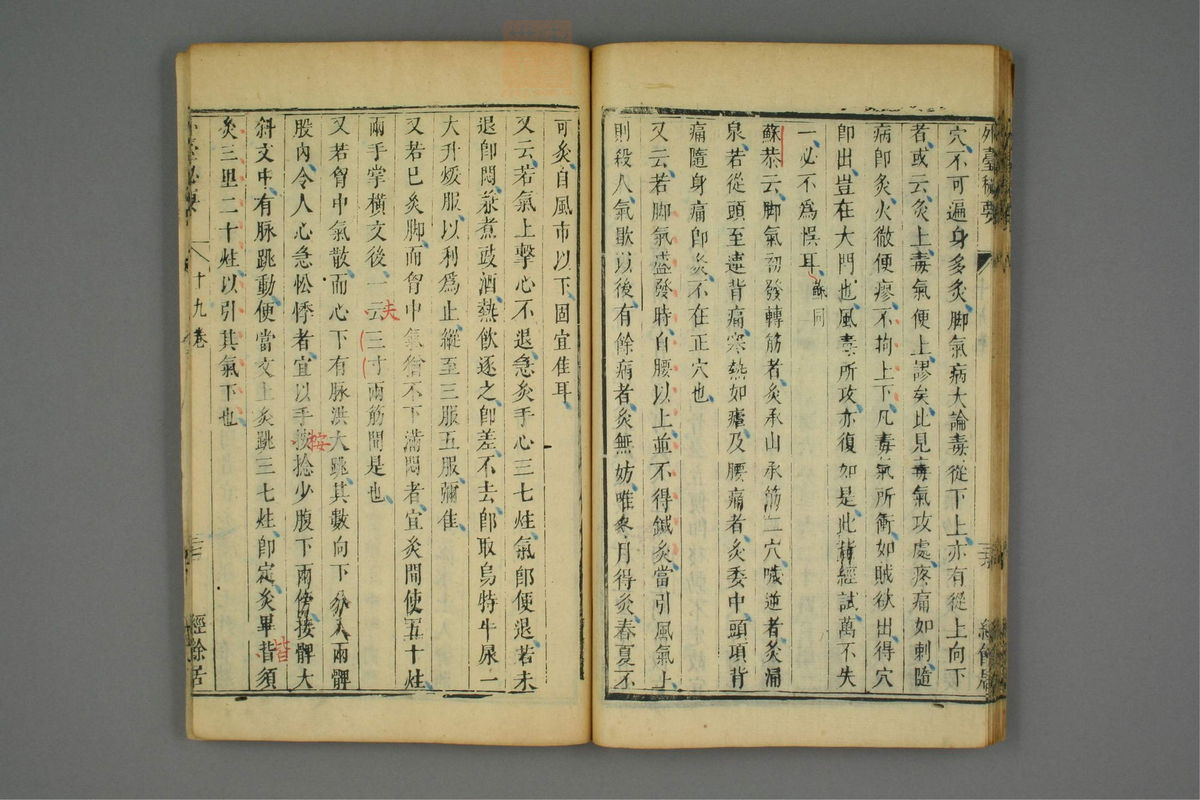 外臺秘要
穴不可遍身多灸脚氣病大論毒從下上亦有從上向下
者或云灸上毒氣便上謬矣此見毒氣攻處疼痛如刺隨
病即灸火徹便瘳不拘上下凡毒氣所衝如賊欲出得穴
即出豈在大門也風毒所攻亦復如是此皆經試萬不失
一必不為悞耳蘇同
蘇恭云脚氣初發轉筋者灸承山承筋二穴噦逆者灸涌
泉若從頭至連背痛寒熱如瘧及腰痛者灸委中頭項背
痛隨身痛即灸不在正穴也
又云若脚氣盛發時自腰以上並不得鍼灸當引風氣上
則殺人氣歇以後有餘病者灸無妨唯冬月得灸春夏不
可灸自風市以下固宜佳耳
又云若氣上擊心不退急灸手心三七炷氣即便退若未
退即悶兼煮豉酒熱飲逐之即差不去即取烏特牛尿一
大升煖服以利為止縱至三服五服彌佳
又若已灸脚而胷中氣猶不下滿悶者宜灸間使五十炷
兩手掌橫文後一云三寸兩筋間是也
夫
又若胷中氣散而心下有脉洪大跳其數向下分入兩髀
股內令人心急忪悸者宜以手按捻少腹下兩傍接髀大
按
斜文中有脉跳動便當文上灸跳三七炷即定灸畢皆須
皆
灸三里二十炷以引其氣下也
十九卷
經餘居